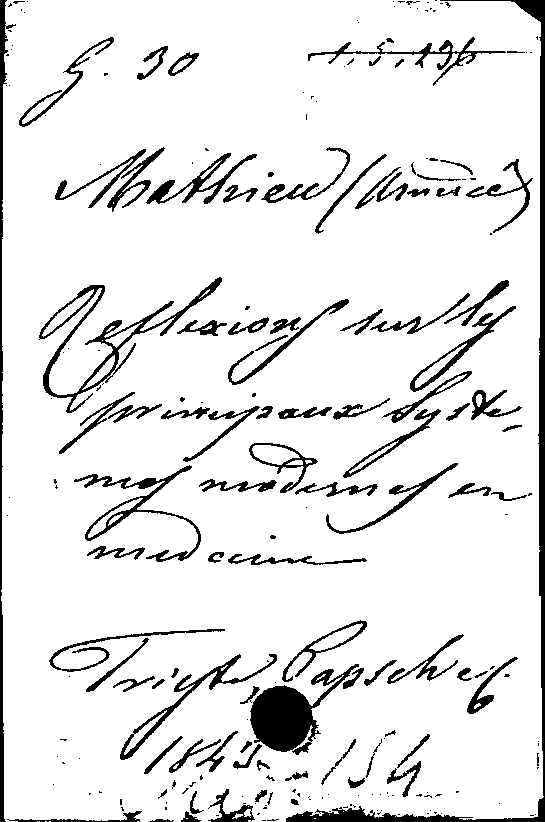 G. 30 1.5.296
Mathieu (Aimée)
Reflexions sur les
principaux Syste-
mes modernes en
medecine
Trieste, Papsch e C.
1843. 154